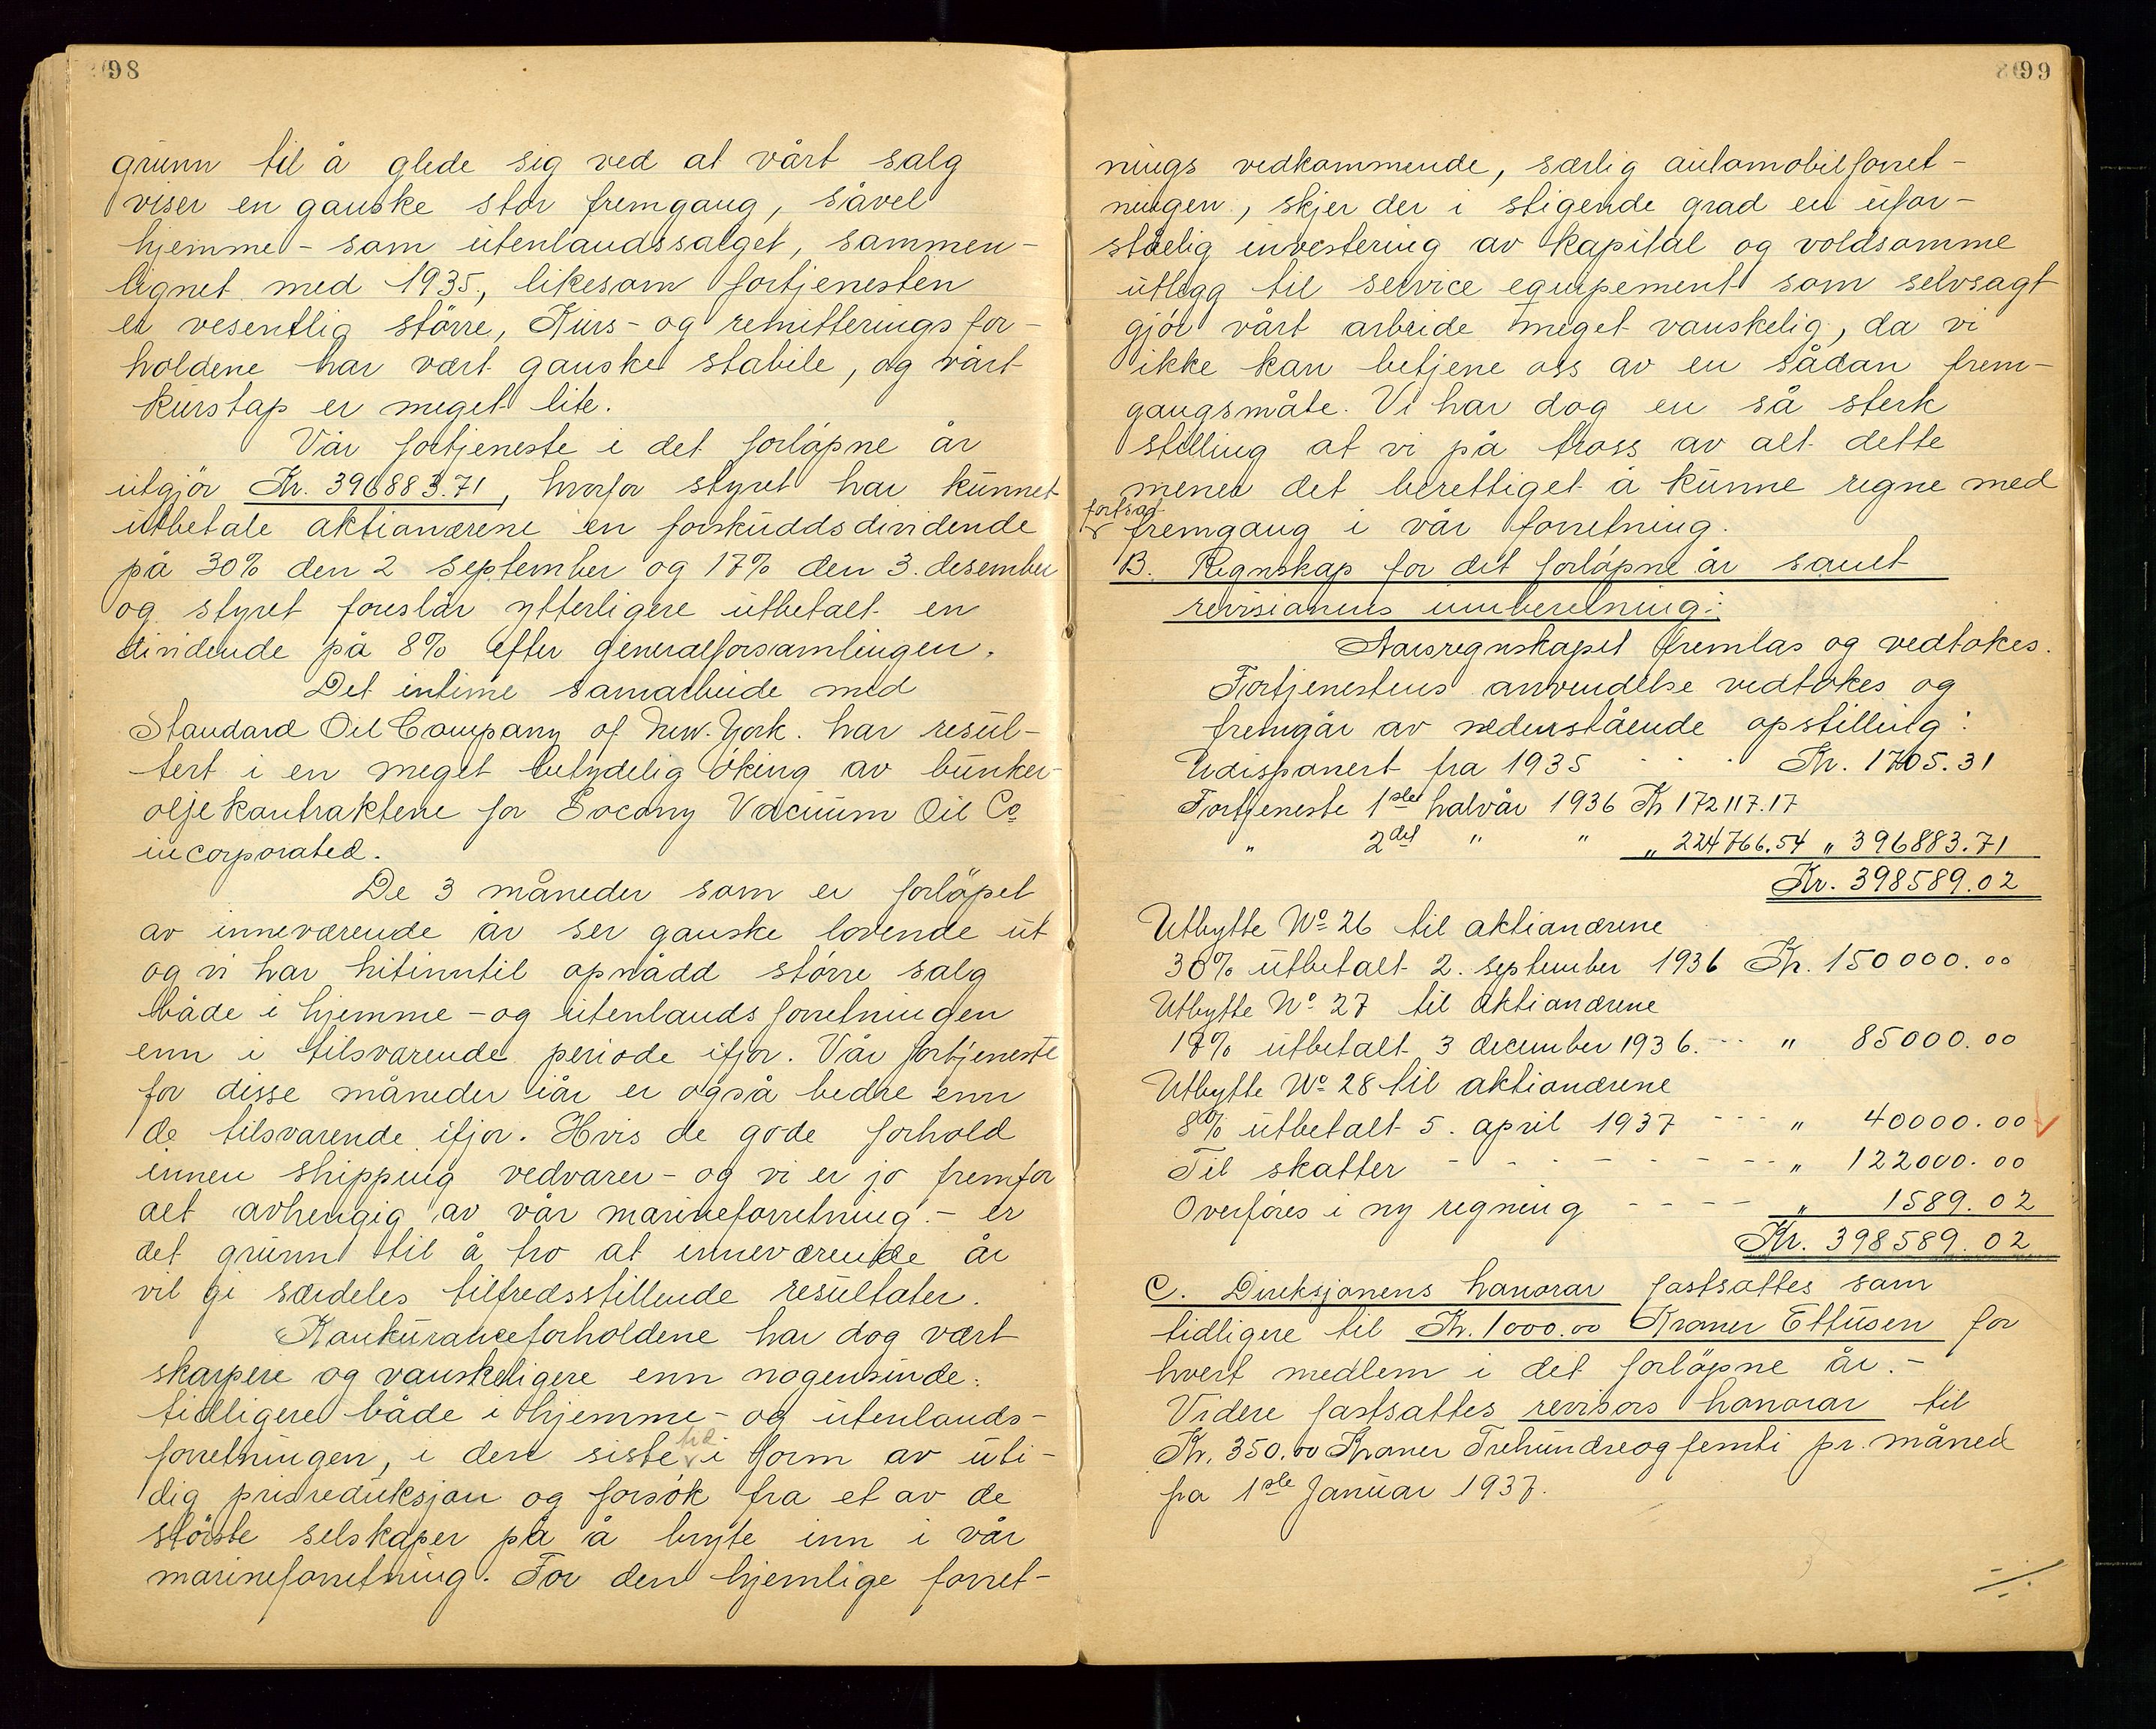 98
grunn til å glede sig ved at vårt salg
viser en ganske stor fremgang, såvel
hjemme- som utenlandssalget, sammen-
lignet med 1935, likesom fortjenesten
er vesentlig større, Kurs- og remitteringsfor-
holdene har vært ganske stabile, og vårt
kurstap er meget lite.
Vår fortjeneste i det forløpne år
utgjör Kr. 396883.71, hvorfor styret har kunnet
utbetale aktionærene en forskuddsdividende
på 30% den 2 september og 17% den 3. desember
og styret foreslår ytterligere utbetalt en
dividende på 8% efter generalforsamlingen.
Det intime samarbeide med
Standard Oil Company of New-York. har resul-
tert i en meget betydelig öking av bunker-
oljekontraktene for Socony Vacuum Oil Co
incorporated.
De 3 måneder som er forløpet
av inneværende år ser ganske lovende ut
og vi har hitinntil opnådd större salg
både i hjemme- og utenlandsforretningen
enn i tilsvarende periode ifjor. Vår fortjeneste
for disse måneder iår er også bedre enn
de tilsvarende ifjor. Hvis de gode forhold
innen shipping vedvarer - og vi er jo fremfor
alt avhengig av vår marineforretning. - er
det grunn til å tro at inneværende år
vil gi særdeles tilfredsstillende resultater.
Konkuranceforholdene har dog vært
skarpere og vanskeligere enn nogensinde
tidligere både i hjemme- og utenlands-
forretningen, i den siste tid i form av uti-
dig prisreduksjon og forsök fra et av de
störste selskaper på å bryte inn i vår
marineforretning. For den hjemlige forret-
99
nings vedkommende, særlig automobilforret-
ningen, skjer der i stigende grad en ufor-
ståelig investering av kapital og voldsomme
utlegg til service equipement som selvsagt
gjör vårt arbeide meget vanskelig, da vi
ikke kan betjene oss av en sådan frem-
gangsmåte. Vi har dog en så sterk
stilling at vi på tross av alt dette
mener det berettiget å kunne regne med
fortsat fremgang i vår forretning.
B. Regnskap for det forløpne år samt
revisionens innberetning:
Aarsregnskapet fremlas og vedtokes.
Fortjenestens anvendelse vedtokes og
fremgår av nedenstående opstilling:
Udisponert fra 1935 . . . Kr. 1705.31
Fortjeneste 1ste halvår 1936 Kr 172117.17
" 2det " " " 224766.54 " 396883.71
Kr. 398589.02
Utbytte No 26 til aktionærene
30% utbetalt 2. september 1936 Kr. 150000.00
Utbytte No 27 til aktionærene
17% utbetalt 3 december 1936. -- " 85000.00
Utbytte No 28 til aktionærene
8% utbetalt 5. april 1937 --- " 40000.00
Til skatter - - - - - - - " 122000.00
Overföres i ny regning - - - - " 1589.02
Kr. 398589.02
C. Direksjonens honorar fastsattes som
tidligere til Kr. 1000.00 Kroner Ettusen for
hvert medlem i det forløpne år. -
Videre fastsattes revisors honorar til
Kr. 350.00 Kroner Trehundreogfemti pr. måned
fra 1ste Januar 1937.